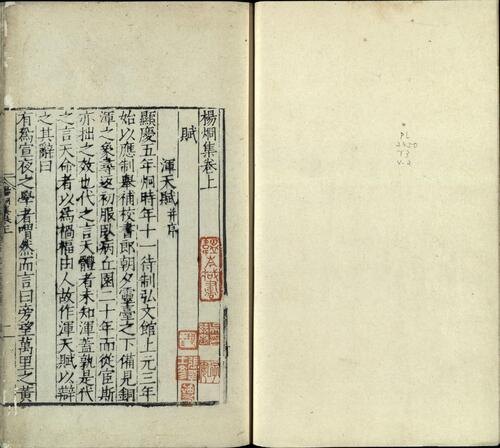 楊炯集卷上
賦
渾天賦并序
顯慶五年炯時年十一待制弘文館上元三年
始以應制舉補校書郎朝夕靈臺之下備見銅
渾之象尋返初服臥病丘園二十年而從官斯
亦拙之效也代之言天體者未知渾蓋孰是代
之言天命者以爲禍福由人故作渾天賦以辯
之其辭曰
有爲宣夜之學者喟然而言曰旁望萬里之黃
PL
2450
T3
v.2